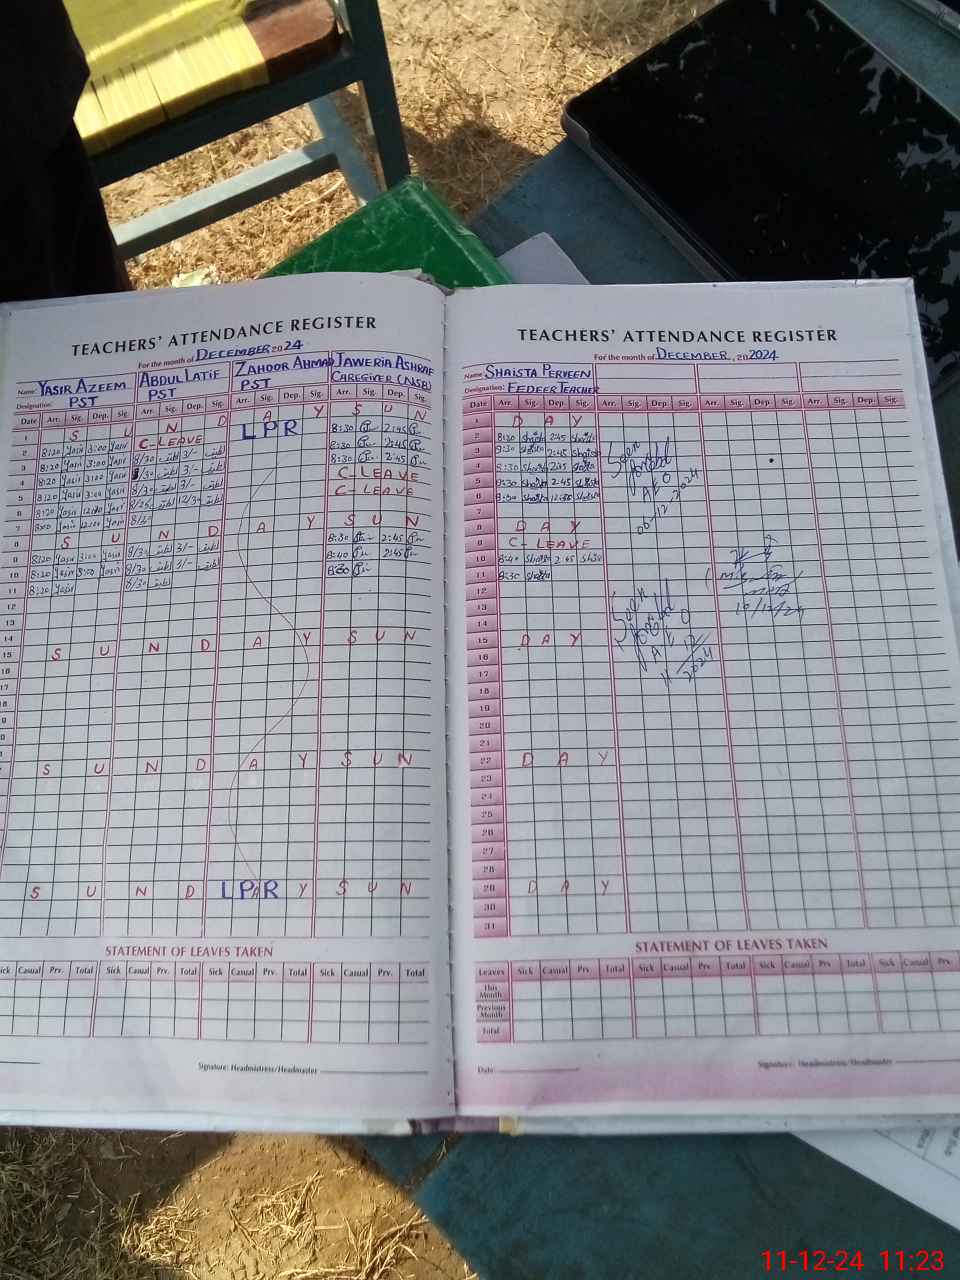 TEACHERS' ATTENDANCE REGISTER
For the month of DECEMBER 2024
Name: YASIR AZEEM ABDUL LATIF ZAHOOR AHMAD JAWERIA ASHRAF
Designation: PST PST PST CAREGIVER (NSB)
Date Arr. Sig. Dep. Sig. Arr. Sig. Dep. Sig. Arr. Sig. Dep. Sig. Arr. Sig. Dep. Sig.
1 S U N D A Y S U N
2 8:20 Yasir 3:00 Yasir C-LEAVE LPR 8:30 2:45
3 8:20 Yasir 3:00 Yasir 8/30 3/- 8:30 2:45
4 8:20 Yasir 3:00 Yasir 8/30 3/- 8:30 2:45
5 8:20 Yasir 3:00 Yasir 8/30 3/- C-LEAVE
6 8:20 Yasir 12:30 Yasir 8/25 12/30 C-LEAVE
7 8:00 Yasir 12:00 Yasir
8 S U N D A Y S U N
9 8:20 Yasir 3:00 Yasir 8/30 3/- 8:30 2:45
10 8:20 Yasir 3:00 Yasir 8/30 3/- 8:40 2:45
11 8:20 Yasir 8/30 8:30
12
13
14
15 S U N D A Y S U N
16
17
18
S U N D A Y S U N
S U N D LPR A Y S U N
STATEMENT OF LEAVES TAKEN
Sick Casual Prv. Total Sick Casual Prv. Total Sick Casual Prv. Total Sick Casual Prv. Total
Signature: Headmistress/Headmaster
TEACHERS' ATTENDANCE REGISTER
For the month of DECEMBER, 2024
Name SHAISTA PERVEEN
Designation: FEDEER TEACHER
Date Arr. Sig. Dep. Sig. Arr. Sig. Dep. Sig. Arr. Sig. Dep. Sig. Arr. Sig. Dep. Sig.
1 D A Y
2 8:30 Shaista 2:45 Shaista
3 8:30 Shaista 2:45 Shaista
4 8:30 Shaista 2:45 Shaista
5 8:30 Shaista 2:45 Shaista
6 8:30 Shaista 12:30 Shaista
7
8 D A Y
9 C-LEAVE
10 8:40 Shaista 2:45 Shaista
11 8:30 Shaista
12
13
14
15 D A Y
16
17
18
19
20
21
22 D A Y
23
24
25
26
27
28
29 D A Y
30
31
Seen
AEO
06-12
2024
10/12/24
Seen
AEO
11/12/
2024
STATEMENT OF LEAVES TAKEN
Leaves Sick Casual Prv. Total Sick Casual Prv. Total Sick Casual Prv. Total Sick Casual Prv.
This Month
Previous Month
Total
Date
Signature: Headmistress/Headmaster
11-12-24 11:23